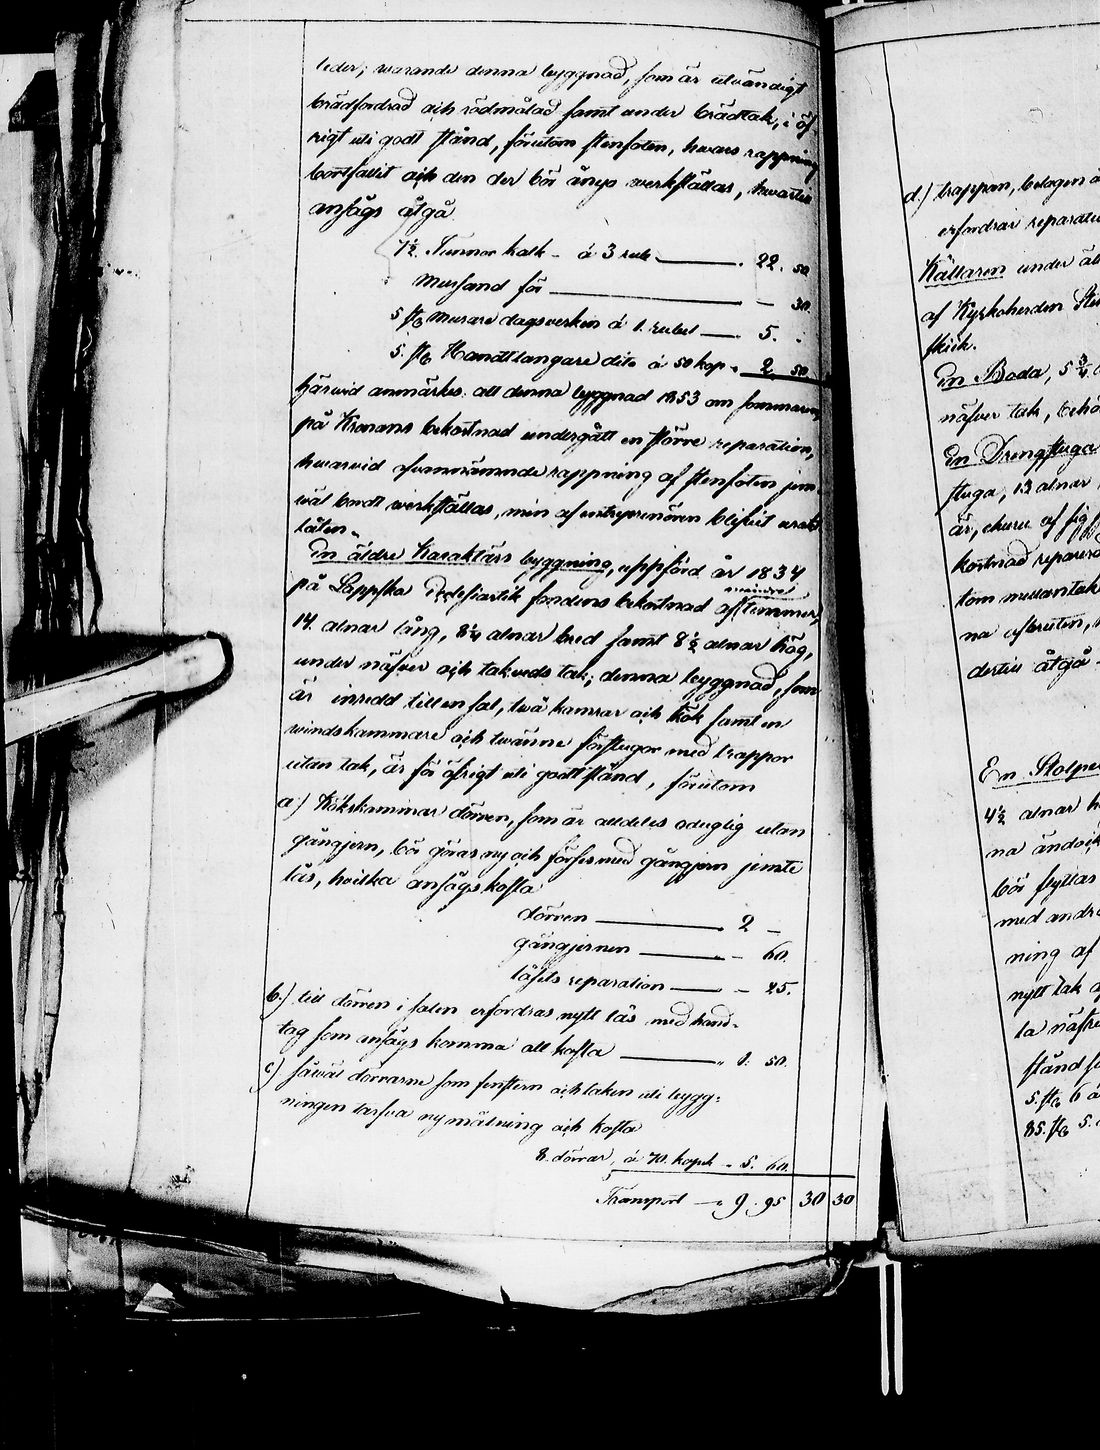 leder; warande denna byggnad, som är utvändigt
brädfordrad och rödmålad samt under brädtak, i öf-
rigt uti godt stånd, förutom stenfoten, hvars rappning
bortfallit och den der bör ånyo werkställas, hwartill
ansågs åtgå
7½ Tunnor kalk - á 3 rub. 22. 50.
Mursand för — 30.
5 st. Murare dagsverken á 1. rubel 5. -
5. st. Handtlangare dito á 50 kop. 2 50
Härvid anmärkes. att denna byggnad 1853 om sommaren,
på Kronans bekostnad undergått en större reparation,
hwarvid ofvannämnde rappning af stenfoten jem-
wäl bordt werkställas, men af entreprenören blifvit
låten.
En äldre Karaktärs byggning, uppförd år 1834
på Lappska Ecclesiastik fondens bekostnad af timmer,
14. alnar lång, 8¼ alnar bred samt 8½ alnar hög,
under näfver och takveds tak; denna byggnad, som
är inredd till en sal, två kamrar och kök samt en
windskammare och twänne förstugor med trappor
utan tak, är för öfrigt uti godt stånd, förutom
a.) Kökskammar dörren, som är alldeles oduglig utan
gångjern, bör göras ny och förses med gångjern jemte
lås, hvilka ansågs kosta
dörren 2 -
gångjernen - 60.
låsets reparation - 25.
b.) till dörren i salen erfordras nytt lås med hand-
tag som ansågs komma att kosta 1. 50.
c.) såväl dörrarne som fenstern och taken uti bygg-
ningen tarfva ny målning och kosta
8. dörrar, á 70. kopek - 5. 60.
Transport 9. 95 30 30
d.) trappan, belägen
erfordrar reparati
Källaren under
af Kyrkoherden
skick.
En Boda, 5¾
näfver tak, behö
En Drengstuga
stuga, 12 alnar
är, ehuru af sig
kostnad reparera
tom mellantak
na
dertill åtgå
En Stolpe
4½ alnar h
na
bör flyttas
med andra
ning af
nytt tak
la näfre
stånd
5. st. 6
85. st. 5.